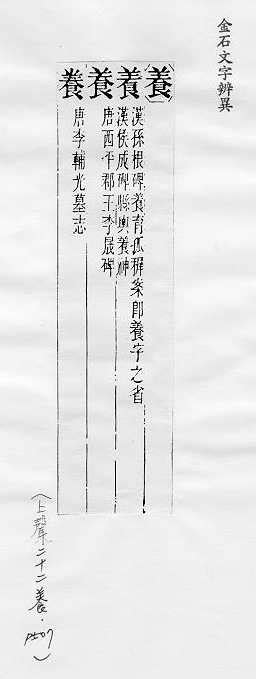 金石文字辨異
養 漢孫根碑養育孤稺案即養字之省
養 漢侯成碑縣輿養神
養 唐西平郡王李晟碑
養 唐李輔光墓志
(上聲二十二養．P507)